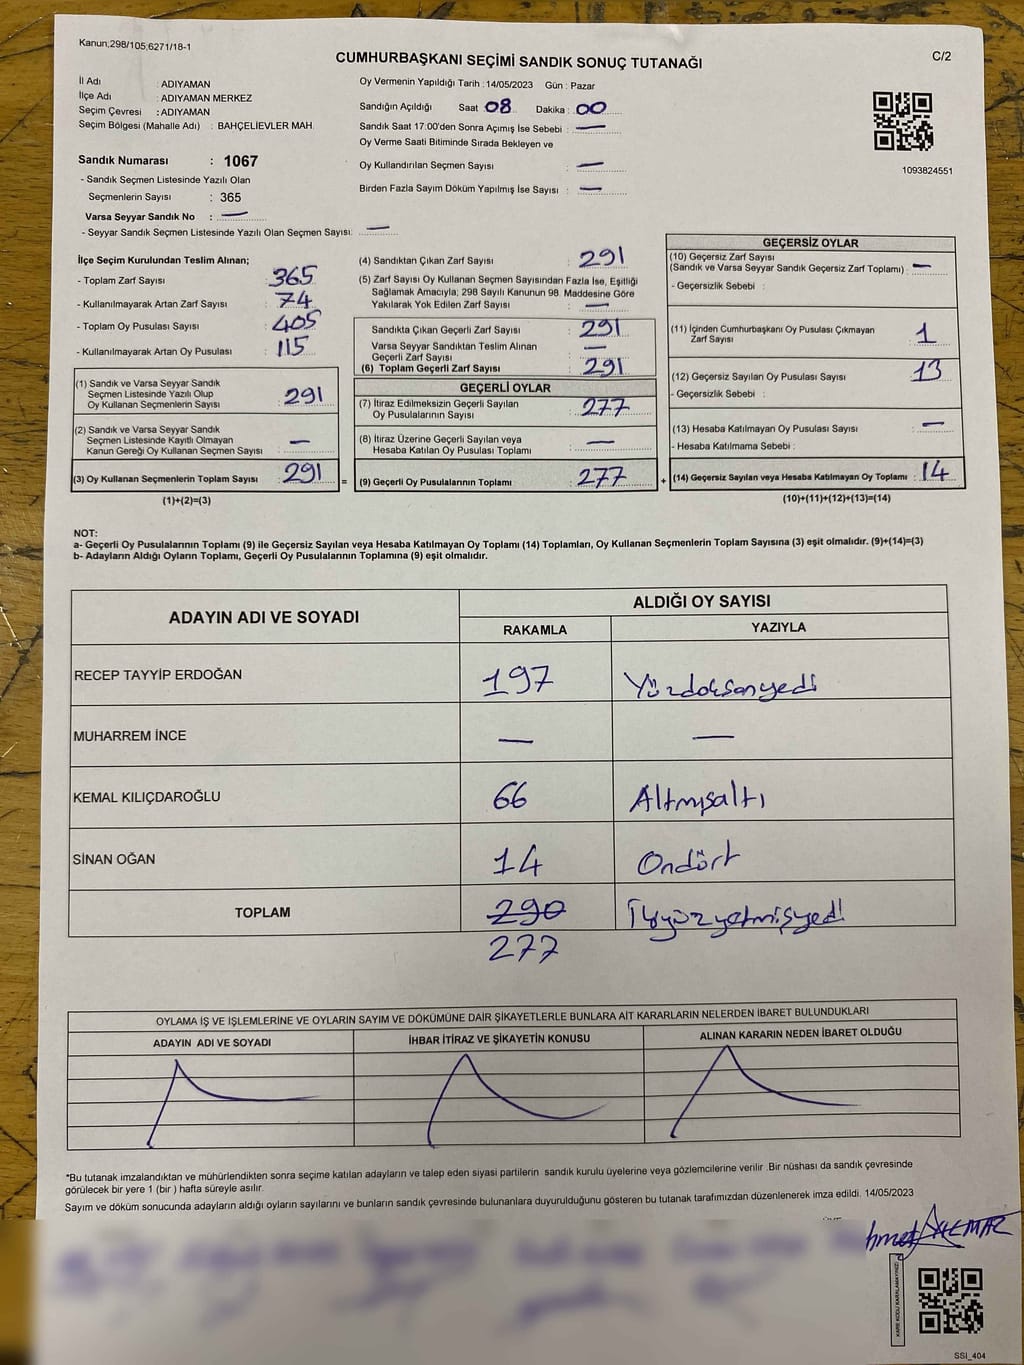 Kanun;298/105;6271/18-1
CUMHURBAŞKANI SEÇİMİ SANDIK SONUÇ TUTANAĞI
C/2
İl Adı : ADIYAMAN
İlçe Adı : ADIYAMAN MERKEZ
Seçim Çevresi : ADIYAMAN
Seçim Bölgesi (Mahalle Adı) : BAHÇELİEVLER MAH.
Sandık Numarası : 1067
- Sandık Seçmen Listesinde Yazılı Olan
Seçmenlerin Sayısı : 365
Varsa Seyyar Sandık No : —
- Seyyar Sandık Seçmen Listesinde Yazılı Olan Seçmen Sayısı: —
Oy Vermenin Yapıldığı Tarih : 14/05/2023 Gün : Pazar
Sandığın Açıldığı Saat 08 Dakika : 00
Sandık Saat 17:00'den Sonra Açımış İse Sebebi : —
Oy Verme Saati Bitiminde Sırada Bekleyen ve
Oy Kullandırılan Seçmen Sayısı : —
Birden Fazla Sayım Döküm Yapılmış İse Sayısı : —
1093824551
İlçe Seçim Kurulundan Teslim Alınan;
- Toplam Zarf Sayısı : 365
- Kullanılmayarak Artan Zarf Sayısı : 74
- Toplam Oy Pusulası Sayısı : 405
- Kullanılmayarak Artan Oy Pusulası : 115
(1) Sandık ve Varsa Seyyar Sandık
Seçmen Listesinde Yazılı Olup
Oy Kullanan Seçmenlerin Sayısı : 291
(2) Sandık ve Varsa Seyyar Sandık
Seçmen Listesinde Kayıtlı Olmayan
Kanun Gereği Oy Kullanan Seçmen Sayısı : —
(3) Oy Kullanan Seçmenlerin Toplam Sayısı : 291
(1)+(2)=(3)
=
(4) Sandıktan Çıkan Zarf Sayısı : 291
(5) Zarf Sayısı Oy Kullanan Seçmen Sayısından Fazla İse, Eşitliği
Sağlamak Amacıyla; 298 Sayılı Kanunun 98. Maddesine Göre
Yakılarak Yok Edilen Zarf Sayısı : —
Sandıkta Çıkan Geçerli Zarf Sayısı : 291
Varsa Seyyar Sandıktan Teslim Alınan
Geçerli Zarf Sayısı : —
(6) Toplam Geçerli Zarf Sayısı : 291
GEÇERLİ OYLAR
(7) İtiraz Edilmeksizin Geçerli Sayılan
Oy Pusulalarının Sayısı : 277
(8) İtiraz Üzerine Geçerli Sayılan veya
Hesaba Katılan Oy Pusulası Toplamı : —
(9) Geçerli Oy Pusulalarının Toplamı : 277
+
GEÇERSİZ OYLAR
(10) Geçersiz Zarf Sayısı
(Sandık ve Varsa Seyyar Sandık Geçersiz Zarf Toplamı) : —
- Geçersizlik Sebebi :
(11) İçinden Cumhurbaşkanı Oy Pusulası Çıkmayan
Zarf Sayısı : 1
(12) Geçersiz Sayılan Oy Pusulası Sayısı : 13
- Geçersizlik Sebebi :
(13) Hesaba Katılmayan Oy Pusulası Sayısı : —
- Hesaba Katılmama Sebebi :
(14) Geçersiz Sayılan veya Hesaba Katılmayan Oy Toplamı : 14
(10)+(11)+(12)+(13)=(14)
NOT:
a- Geçerli Oy Pusulalarının Toplamı (9) ile Geçersiz Sayılan veya Hesaba Katılmayan Oy Toplamı (14) Toplamları, Oy Kullanan Seçmenlerin Toplam Sayısına (3) eşit olmalıdır. (9)+(14)=(3)
b- Adayların Aldığı Oyların Toplamı, Geçerli Oy Pusulalarının Toplamına (9) eşit olmalıdır.
ADAYIN ADI VE SOYADI
ALDIĞI OY SAYISI
RAKAMLA YAZIYLA
RECEP TAYYİP ERDOĞAN 197 Yüzdoksanyedi
MUHARREM İNCE — —
KEMAL KILIÇDAROĞLU 66 Altmışaltı
SİNAN OĞAN 14 Ondört
TOPLAM 290 İkiyüzyetmişyedi
277
OYLAMA İŞ VE İŞLEMLERİNE VE OYLARIN SAYIM VE DÖKÜMÜNE DAİR ŞİKAYETLERLE BUNLARA AİT KARARLARIN NELERDEN İBARET BULUNDUKLARI
ADAYIN ADI VE SOYADI İHBAR İTİRAZ VE ŞİKAYETİN KONUSU ALINAN KARARIN NEDEN İBARET OLDUĞU
*Bu tutanak imzalandıktan ve mühürlendikten sonra seçime katılan adayların ve talep eden siyasi partilerin sandık kurulu üyelerine veya gözlemcilerine verilir .Bir nüshası da sandık çevresinde
görülecek bir yere 1 (bir ) hafta süreyle asılır.
Sayım ve döküm sonucunda adayların aldığı oyların sayılarını ve bunların sandık çevresinde bulunanlara duyurulduğunu gösteren bu tutanak tarafımızdan düzenlenerek imza edildi. 14/05/2023
KARE KODU KARALAMAYINIZ!
SSI_404